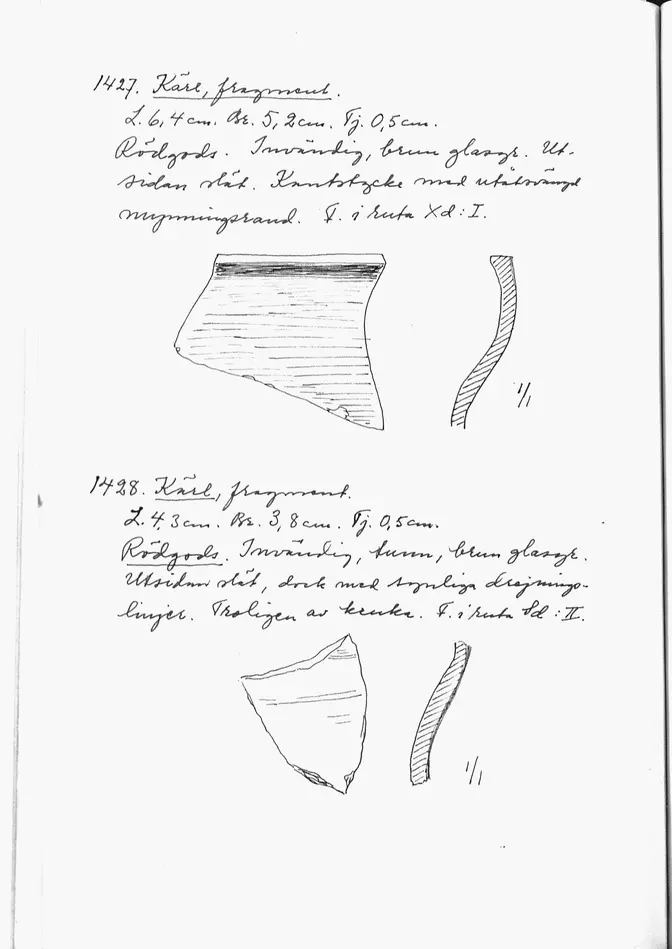 1427. Kärl, fragment.
L. 6,4 cm. Br. 5,2 cm. Tj. 0,5 cm.
Rödgods. Invändig, brun glasyr. Ut-
sidan slät. Kantstycke med utåtsvängd
mynningsrand. F. i ruta Xd: I.
1/1
1428. Kärl, fragment.
L. 4,3 cm. Br. 3,8 cm. Tj. 0,5 cm.
Rödgods. Invändig, tunn, brun glasyr.
Utsidan slät, dock med synliga drejnings-
linjer. Troligen av kruka. F. i ruta d: II.
1/1